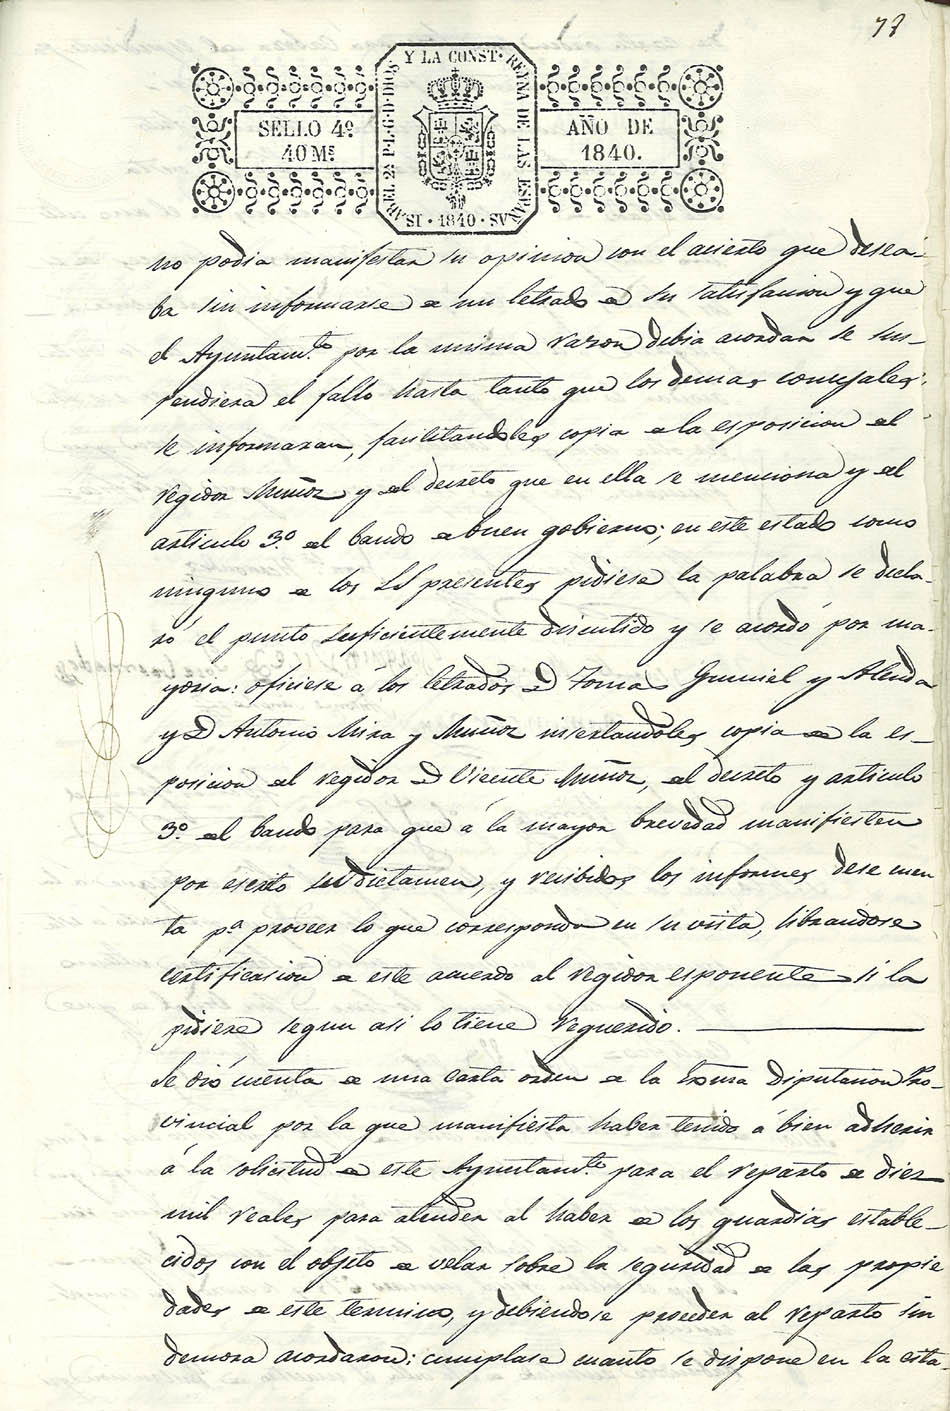 73
Y LA CONST. REYNA DE LAS ESPAÑAS · 1840 · ISABEL 2ª P.L.G.D.DIOS
SELLO 4º
40 Ms
AÑO DE
1840.
no podia manifestar su opinion con el acierto que desea-
ba sin informarse de un letrado de su satisfacion y que
el Ayuntam.to por la misma razon debia acordar se sus-
pendiera el fallo hasta tanto que los demas concejales
se informaran, facilitandoles copia de la esposicion del
regidor Muñoz y del decreto que en ella se menciona y del
articulo 3.º del bando de buen gobierno; en este estado como
ninguno de los SS presentes pidiese la palabra se decla-
ró el punto suficientemente discutido y se acordó por ma-
yoria: oficiese á los letrados D Tomas Gumiel y Alenda
y D Antonio Mira y Muñoz insertandoles copia de la es-
posicion del regidor D Vicente Muñoz, del decreto y articulo
3º del bando para que á la mayor brevedad manifiesten
por escrito su dictamen, y recibidos los informes dese cuen
ta pª proveer lo que corresponda en su vista, librandose
certificacion de este acuerdo al regidor esponente si la
pidiere segun asi lo tiene requerido.
Se dió cuenta de una carta orden de la Exma Diputacion Pro-
vincial por la que manifiesta haber tenido á bien adherir
á la solicitud de este Ayuntam.to para el reparto de diez
mil reales para atender al haber de los guardias estable-
cidos con el objeto de velar sobre la seguridad de las propie
dades de este termino, y debiendose proceder al reparto sin
demora acordaron: cumplase cuanto se dispone en la cita-